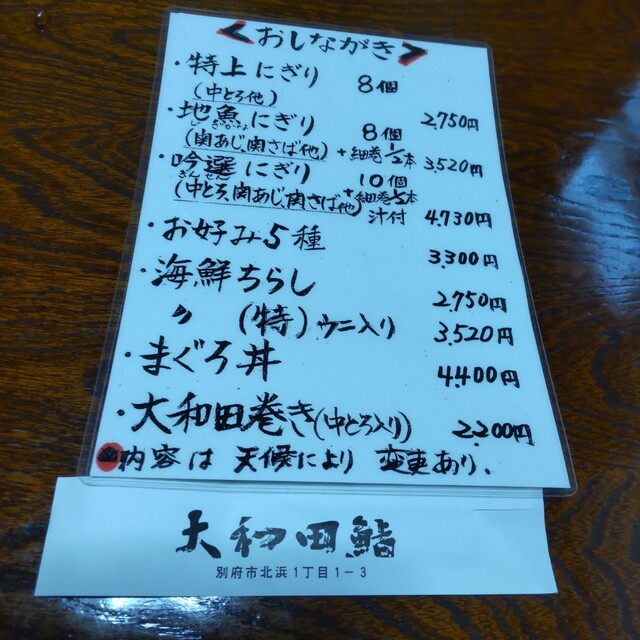 <おしながき>
・特上にぎり 8個 2,750円
(中とろ他)
・地魚にぎり 8個 3,520円
(関あじ、関さば他) +細巻1/2本
・吟選にぎり 10個 4,730円
ぎんせん
(中とろ、関あじ、関さば他) +細巻1/2本 汁付
・お好み5種 3,300円
・海鮮ちらし 2,750円
〃 (特)ウニ入り 3,520円
・まぐろ丼 4,400円
・大和田巻き(中とろ入り) 2,200円
内容は 天候により 変更あり、
大和田鮨
別府市北浜1丁目1-3